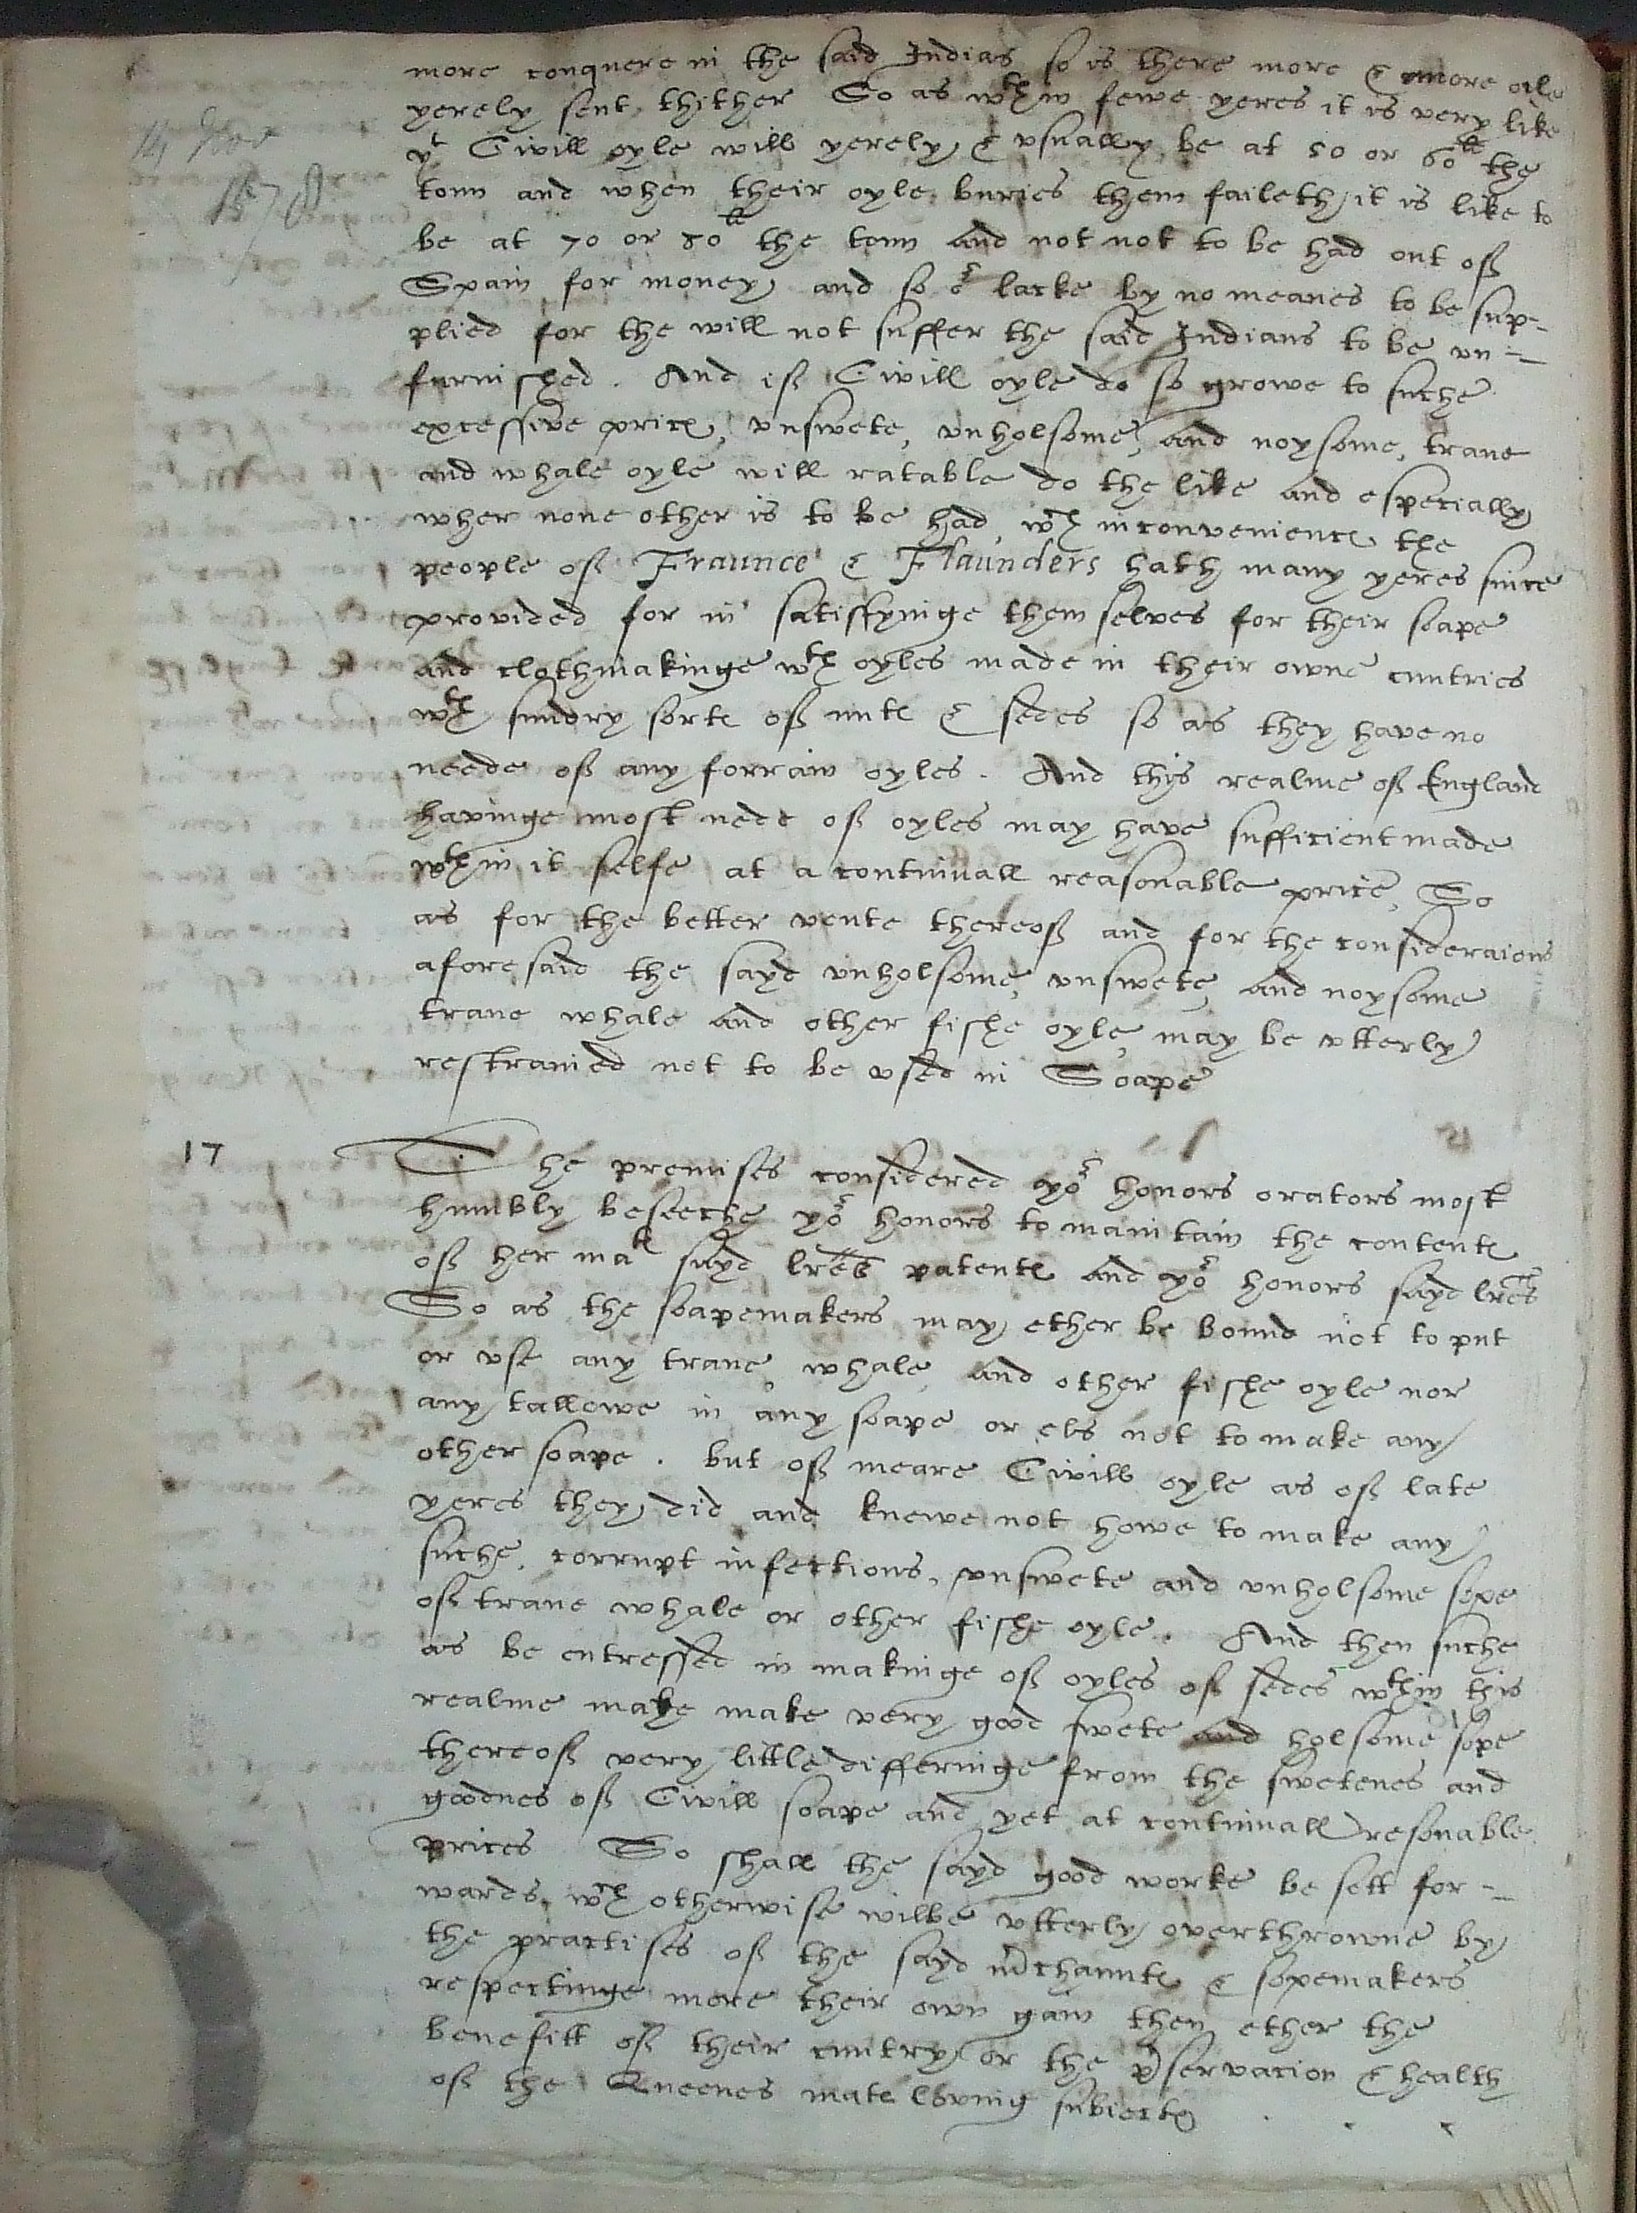 more conquere in the said Indias so is there more & more oile
yerely sent thither So as wth in fewe yeres it is very like
yt Civill oyle will yerely & usually be at 50 or 60li the
tonn and when their oyle buries them faileth it is like to
be at 70 or 80li the tonn and not not to be had out of
Spain for money, and so or lacke by no meanes to be sup-
plied for the will not suffer the said Indians to be un-
furnished. And if Civill oyle do so growe to suche
excessive prices, unswete, unholsome, and noysome, trane
and whale oyle will ratable do the like and especially
wher none other is to be had, wch inconveniences the
people of Fraunce & Flaunders hath many yeres since
provided for in satisfyinge them selves for their soape
and clothmakinge wth oyles made in their owne cuntries
wth sundry sortes of nutes & sedes so as they have no
neede of any forrain oyles. And this realme of England
havinge most nede of oyles may have sufficient made
wthin it selfe at a continuall reasonable price, So
as for the better vente thereof and for the consideraions
aforesaid the sayd unholsome, unswete, and noysome
trane whale and other fishe oyle, may be utterly
restrained not to be used in Soape
17 The premises considered yor honors orators most
humbly beseeche yor honors to maintain the contentes
of her mates sayd lres patentes and yor honors sayd lres
So as the soapemakers may ether be bound not to put
or use any trane, whale, and other fishe oyle nor
any tallowe in any soape or els not to make any
other soape. but of meare Civill oyle as of late
yeres they did and knewe not howe to make any
suche, corrupt infectious, unswete and unholsome sope
of trane whale or other fishe oyle. And then suche
as be entressed in makinge of oyles of sedes wthin this
realme make make very good swete and holsome sope
thereof very little differinge from the swetenes and
goodnes of Civill soape and yet at continuall resonable
prices So shall the sayd good worke be sett for-
wards, wch otherwise wilbe utterly overthrowne by
the practises of the sayd mchauntes & sopemakers
respectinge more their own gain then ether the
benefitt of their cuntry or the pservacion & health
of the Queenes mates loving subiectes
14 Nov
1578